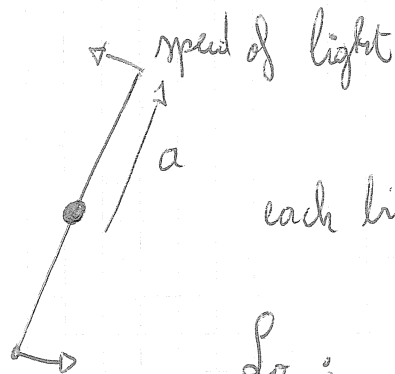 speed of light
a
each
So :